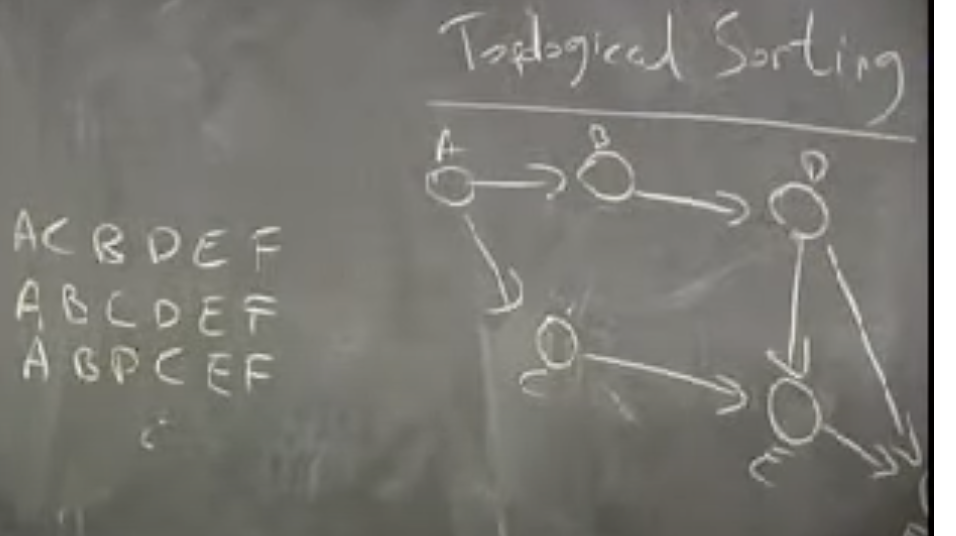 Topological Sorting
A
B
D
A C B D E F
A B C D E F
A B D C E F
C